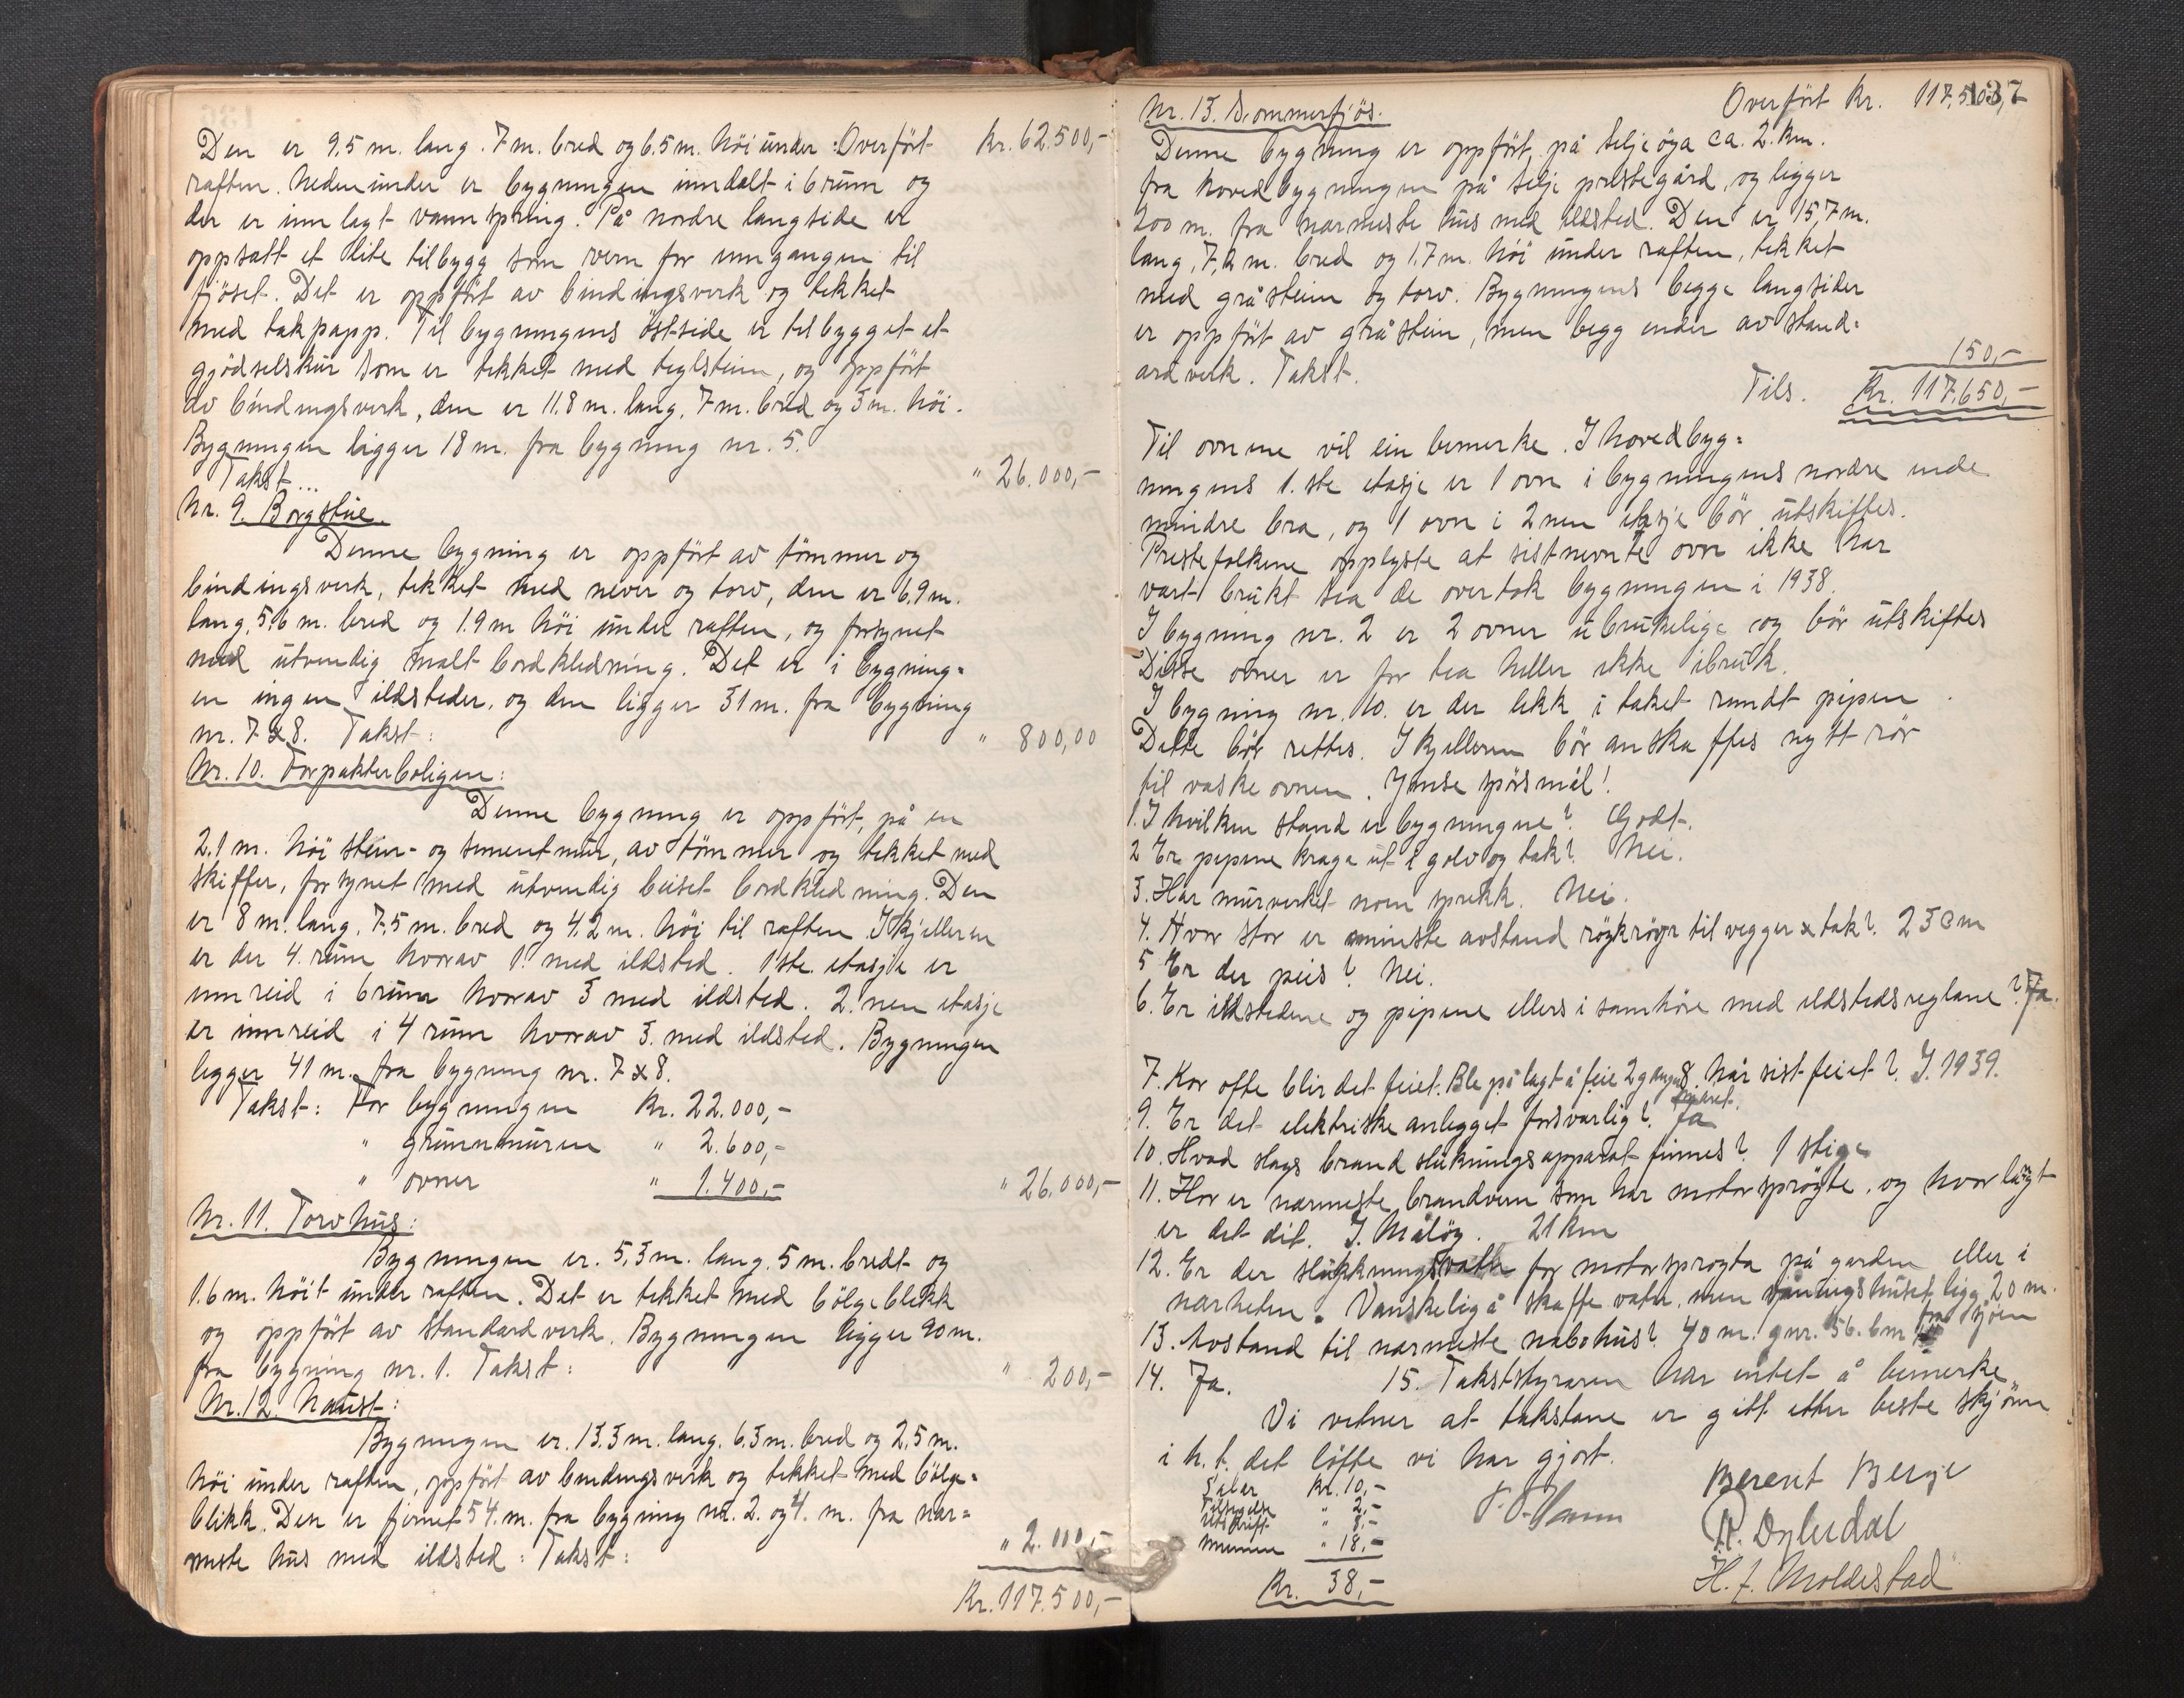 Den er 9.5 m. lang. 7 m. bred og 6.5 m. höi under : Overfört kr. 62.500,-
raften. Nedenunder er bygningen inndelt i 6 rum og
der er innlagt vannspring. På nordre langside er
oppsatt et lite tilbygg som vern for inngangen til
fjöset. Det er oppfört av bindingsverk og tekket
med takpapp. Til bygningens östside er tilbygget et
gjödselskur som er tekket med teglstein, og oppfört
av bindingsverk, den er 11.8 m. lang, 7 m. bred og 3 m. höi.
Bygningen ligger 18 m. fra bygning nr. 5.
Takst... " 26.000,-
Nr. 9. Borgstue.
Denne bygning er oppfört av tömmer og
bindingsverk, tekket med never og torv, den er 6.9 m.
lang, 5.6 m. bred og 1.9 m höi under raften, og forsynet
med utvendig malt bordkledning. Det er i bygning=
en ingen ildsteder, og den ligger 31 m. fra bygning
nr. 7 & 8. Takst: " 800,00
Nr. 10. Forpakterboligen:
Denne bygning er oppfört, på en
2.1 m. höi stein- og sementmur, av tömmer og tekket med
skiffer, forsynet med utvendig beiset bordkledning. Den
er 8 m. lang, 7.5 m. bred og 4.2 m. höi til raften. I kjelleren
er der 4. rum hvorav 1. med ildsted. 1ste. etasje er
innreid i 6 rum hvorav 3 med ildsted. 2.nen etasje
er innreid i 4 rum hvorav 3. med ildsted. Bygningen
ligger 41 m. fra bygning nr. 7 & 8.
Takst: For bygningen Kr. 22.000,-
" grunnmuren " 2.600,-
" ovner " 1.400,- " 26.000,-
Nr. 11. Torvhus:
Bygningen er. 5,3 m. lang. 5 m. bredt og
1.6 m. höit under raften. Det er tekket med bölgeblekk
og oppfört av standardverk. Bygningen ligger 90 m.
fra bygning nr. 1. Takst: " 200,-
Nr. 12. Naust:
Bygningen er. 13.3 m. lang. 6.3 m. bred og 2,5 m.
höi under raften, oppfört av bindingsverk og tekket med bölge=
blikk. Den er fjernet 54. m. fra bygning nr. 2. og 4. m. fra nær=
meste hus med ildsted : Takst: " 2.000,-
Kr. 117.500,-
137
Nr. 13. Sommerfjös. Overfört Kr. 117.500,-
Denne bygning er oppfört, på Seljeöya ca. 2. km.
fra hovedbygningen på Selje prestegård, og ligger
200 m. fra nærmeste hus med ildsted. Den er 15,7 m.
lang, 7,2 m. bred og 1.7 m. höi under raften, tekket
med gråstein og torv. Bygningens begge langsider
er oppfört av gråstein, men begg ender av stand=
ardverk. Takst. 150,-
Tils. Kr. 117.650,-
Til ovnene vil ein bemerke. I hovedbyg=
ningens 1.ste etasje er 1 ovn i bygningens nordre ende
mindre bra, og 1 ovn i 2nen etasje bör utskiftes.
Prestefolkene opplyste at sistnevnte ovn ikke har
vært brukt sia de overtok bygningen i 1938.
I bygning nr. 2 er 2 ovner ubrukelige og bör utskiftes
Disse ovner er for tia heller ikke ibruk.
I bygning nr. 10. er der lekk i taket rundt pipen
Dette bör rettes. I kjelleren bör anskaffes nytt rör
til vaskeovnen. Ymse spörsmål!
1. I hvilken stand er bygningne? Godt.
2 Er pipene kraga ut i golv og tak? Nei.
3. Har murverket noen sprekk. Nei.
4. Hvor stor er minste avstand röykröyr til vegger & tak? 23 cm
5 Er der peis? Nei.
6. Er ildstedene og pipene ellers i samhöve med ildstedsreglane? Ja.
7. Kor ofte blir det feiet. Ble pålagt å feie 2 ganger 8. Når sist feiet? I. 1939.
9. Er det elektriske anlegget forsvarlig? Ja
10. Hvad slags brandslukningsapparat finnes? 1 stige
11. Hvor er nærmeste brandvern som har motorspröyte, og hvor langt
er det dit. I. Måløy. 21 km
12. Er der slukkningsvatn for motorspröyta på garden eller i
nærheten. Vanskelig å skaffe vatn, men våningshuset ligg 20 m.
fra sjöen
13. Avstand til nærmeste nabohus? 40 m. gnr. 56. bnr
14. Ja. 15. Takststyraren har intet å bemerke.
Vi vitner at takstane er gitt etter beste skjönn
i h. t. det löfte vi har gjort.
Salær Kr. 10,-
Tilsigelse " 2,-
Utskrift " 8,-
" 18,-
Kr. 38,-
Berent Berge
H. f. Moldestad